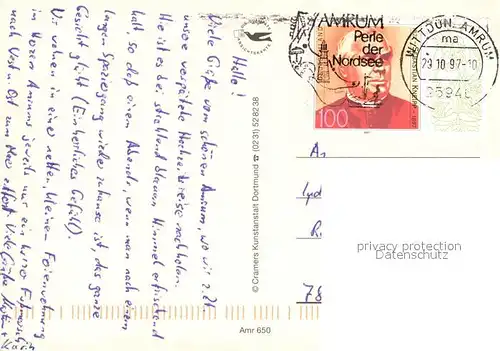 Hallo!
Viele Grüße vom schönen Amrum, wo wir z. Zt.
unsere verspätete Hochzeitsreise nachholen.
Hier ist es bei strahlend blauem Himmel erfrischend
kalt, so daß einem Abends, wenn man nach einem
langen Spaziergang wieder zuhause ist das ganze
Gesicht glüht (Ein herrliches Gefühl).
Wir wohnen in einer netten, kleinen Ferienwohnung
im Norden Amrums jeweils nur ein kurzer Fußmarsch
nach West u. Ost zum Meer entfernt. Viele Grüße
Karin
© Cramers Kunstanstalt Dortmund ☎ (0231) 528238
Amr 650
AMRUM
Perle
der
Nordsee
100
SEBASTIAN KNEIPP
WITTDÜN, AMRUM
ma
29.10.97-10
25946
An
Ri
78
privacy protection
Datenschutz